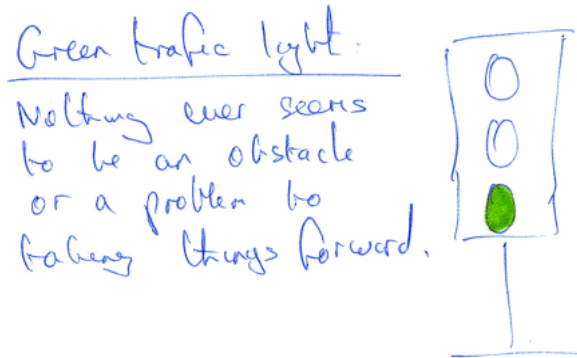 Green trafic light.
Nothing ever seems
to be an obstacle
or a problem to
taking things forward.